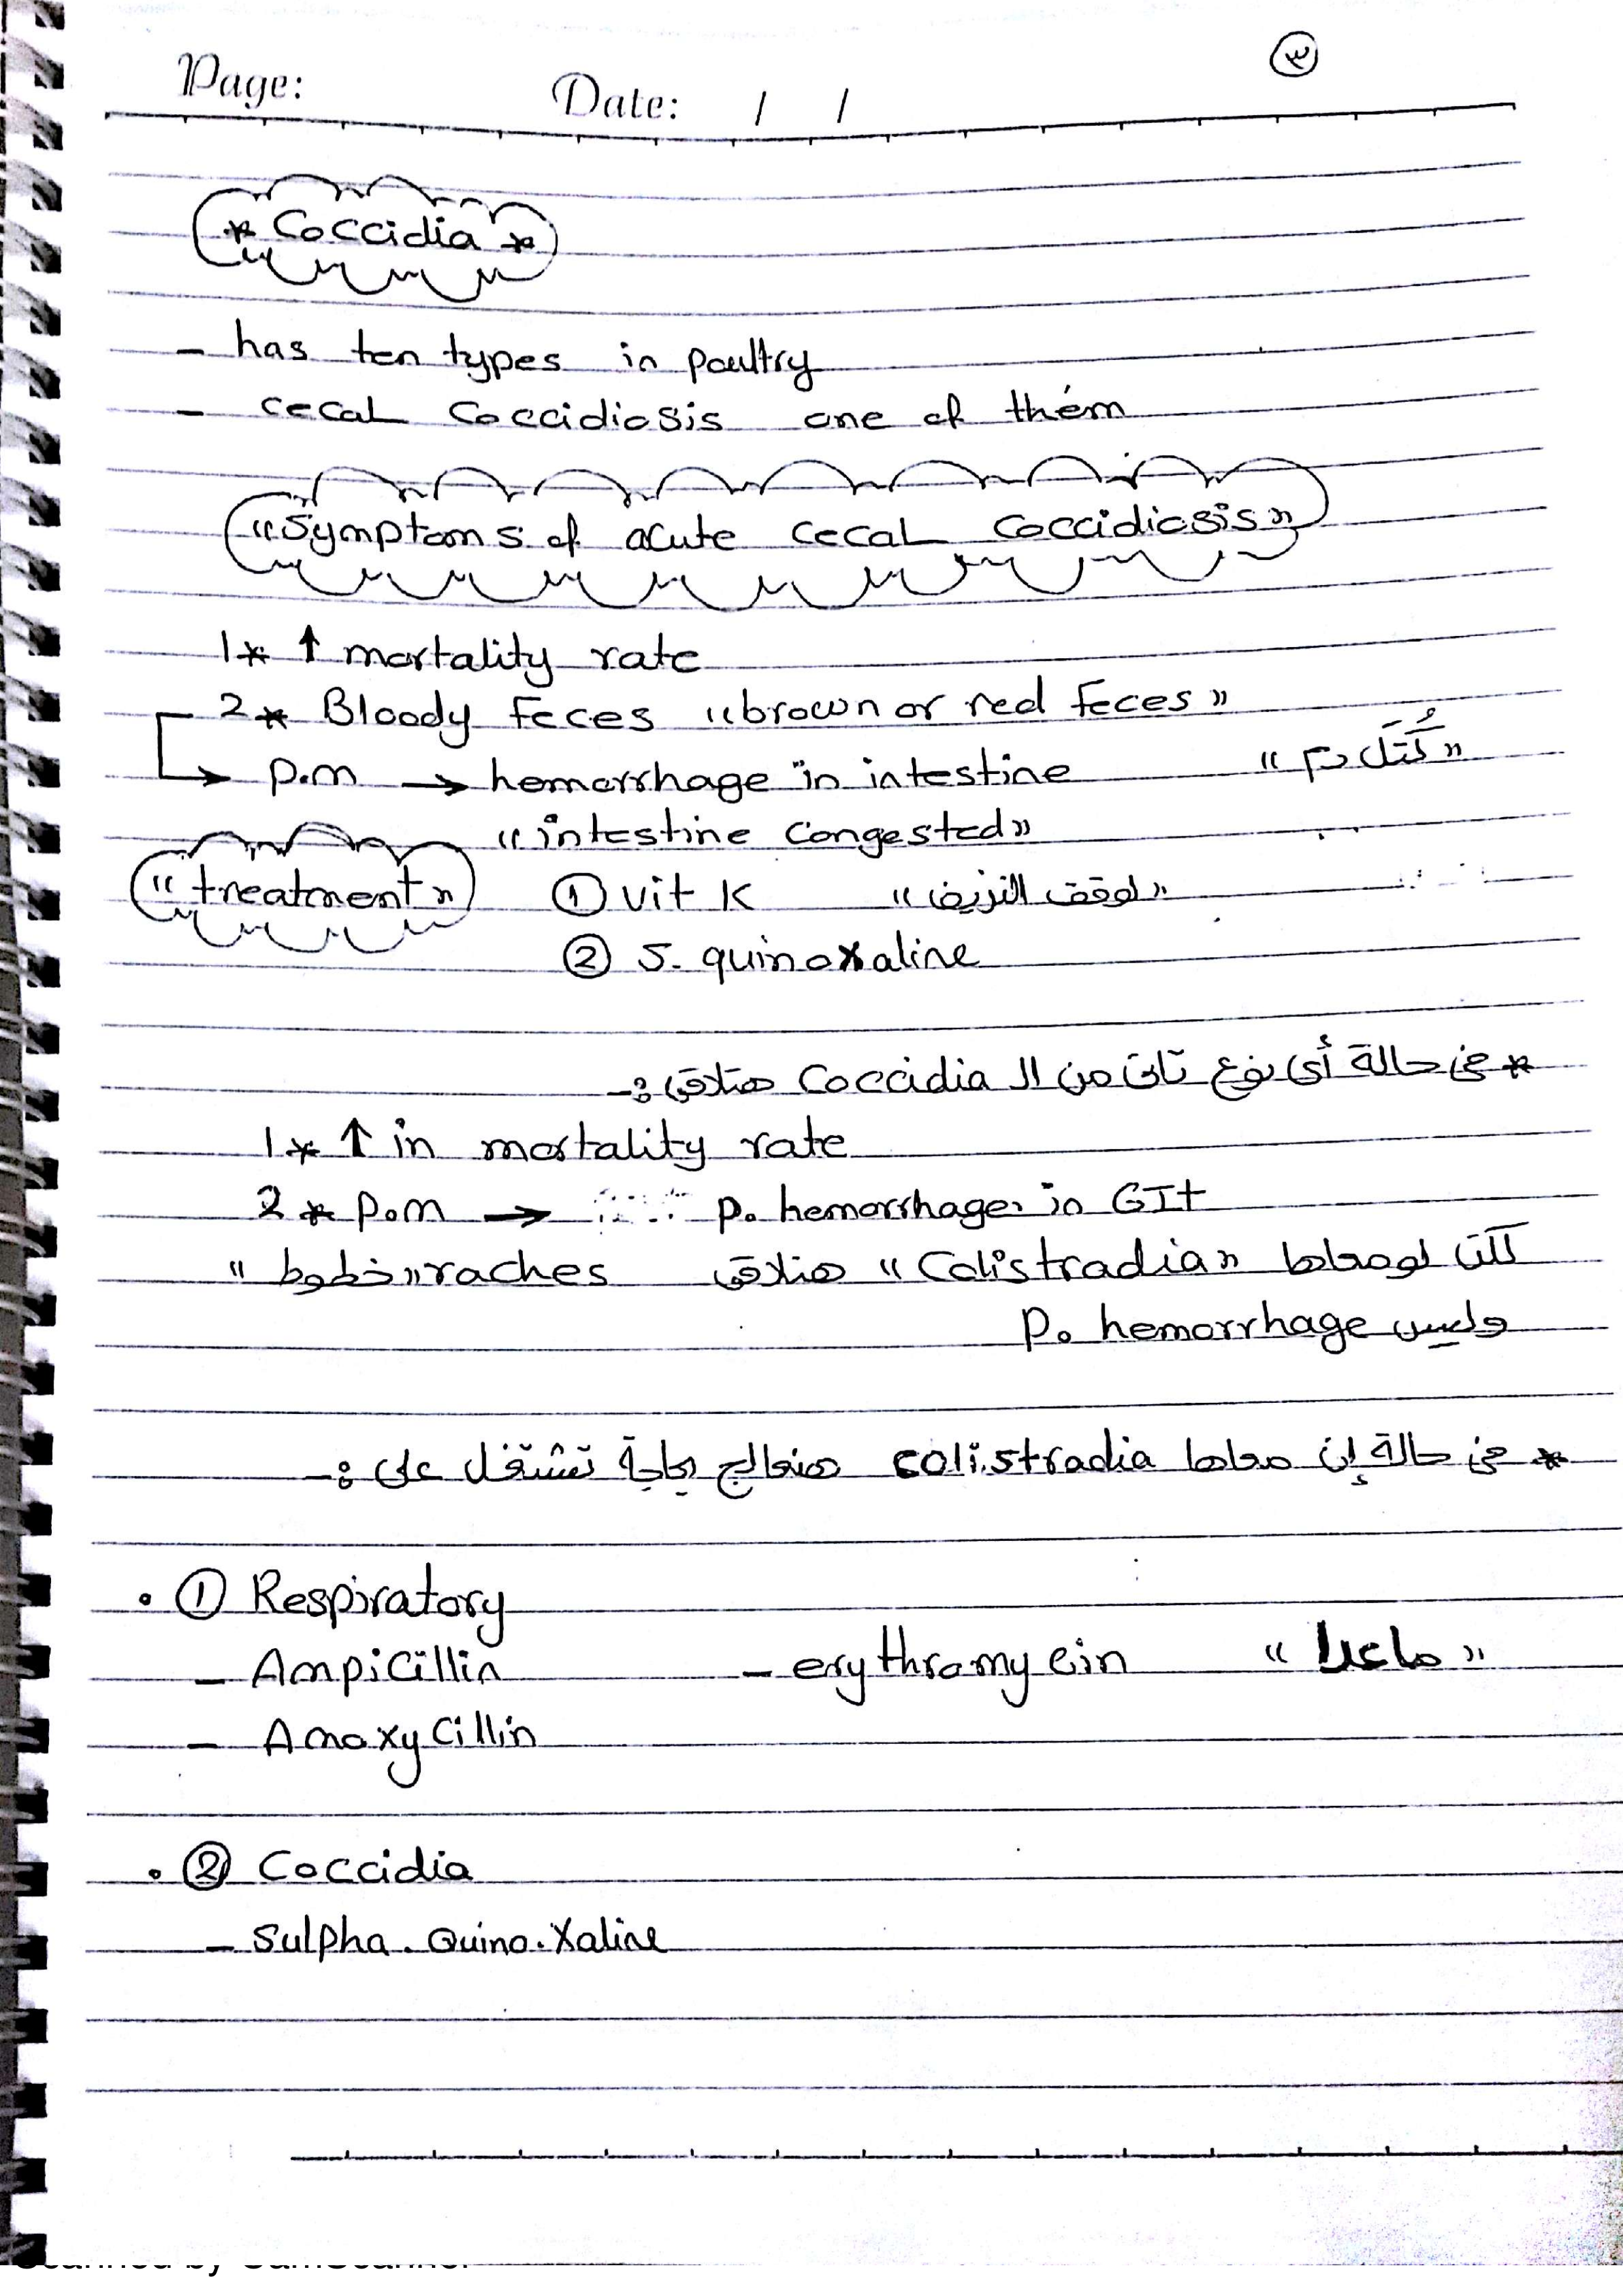 ٣
Page: Date: / /
* Coccidia *
- has ten types in poultry
- cecal Coccidiosis one of them
"Symptoms of acute cecal coccidiosis"
1* ↑ mortality rate
2* Bloody feces "brown or red feces"
↳ p.m → hemorrhage in intestine "كُتَل دم"
"intestine congested"
"treatment" ① vit K "لوقف النزيف"
② S. quinoxaline
* فى حالة أى نوع تانى من الـ Coccidia هنلاقى :-
1* ↑ in mortality rate
2* p.m → p. hemorrhage in GIt
لكن لو معاها "Colistradia" هنلاقى raches "خطوط"
وليس p. hemorrhage
* فى حالة إن معاها colistradia هنعالج بحاجة تشتغل على :-
• ① Respiratory
- Ampicillin - erythromycin "ماعدا"
- Amoxycillin
• ② Coccidia
- Sulpha. Quino. Xaline
Scanned by CamScanner